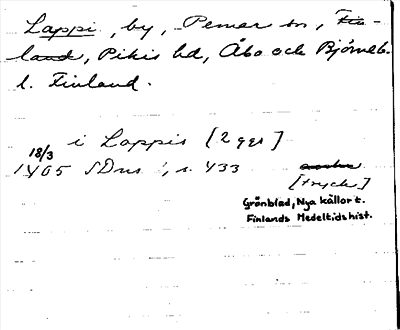 Lappi, by, Pemar sn, Fin-
land, Pikis hd, Åbo och Björneb.
l. Finland.
i Lappis [2 ggr]
18/3
1405 SDns 1, s. 433 avskr
[tryck]
Grönblad, Nya källor t.
Finlands Medeltidshist.